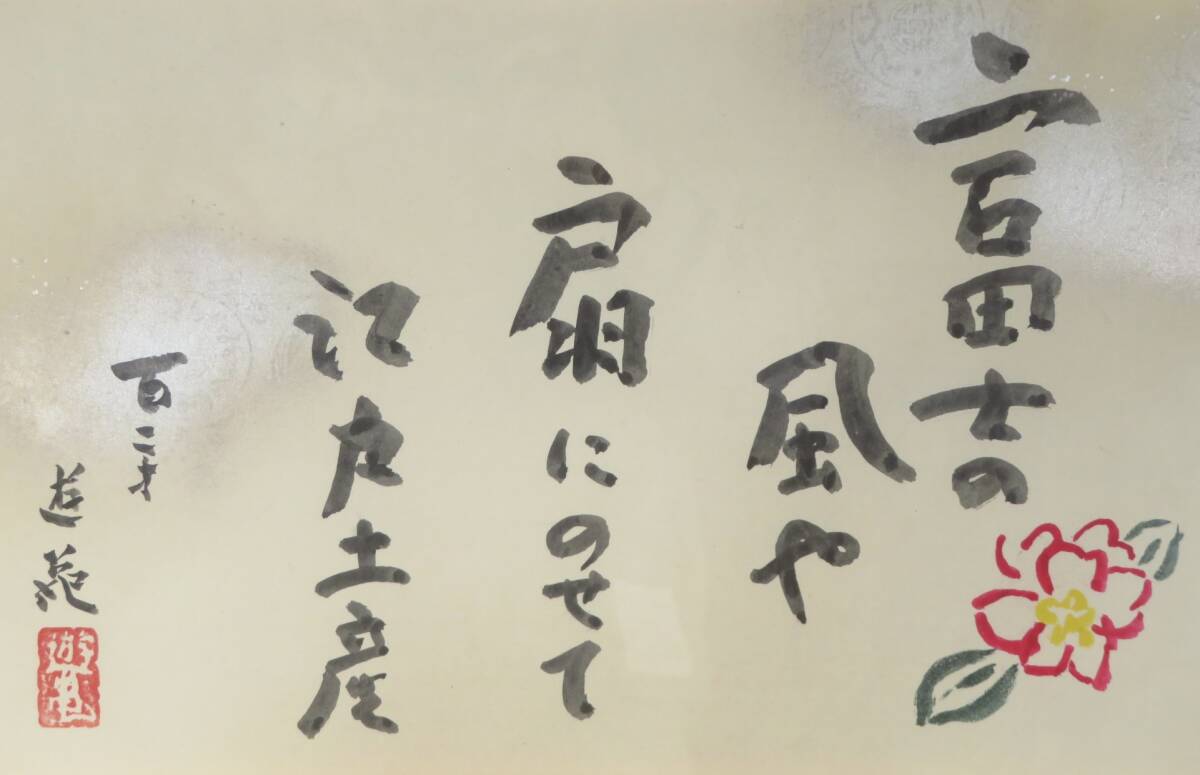 富士の
風や
扇にのせて
江戸土産
百二才
遊苑